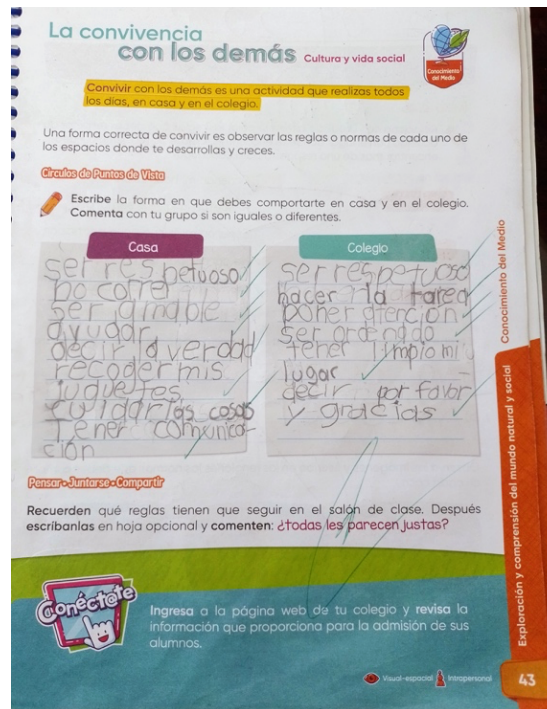 La convivencia
con los demás Cultura y vida social
Conocimiento
del Medio
Convivir con los demás es una actividad que realizas todos
los días, en casa y en el colegio.
Una forma correcta de convivir es observar las reglas o normas de cada uno de
los espacios donde te desarrollas y creces.
Círculos de Puntos de Vista
Escribe la forma en que debes comportarte en casa y en el colegio.
Comenta con tu grupo si son iguales o diferentes.
Casa
ser respetuoso
no correr
ser amable
ayudar
decir la verdad
recoder mis
juguetes
cuidar las cosas
Tener comunica-
ción
Colegio
ser respetuoso
hacer la tarea
poner atencion
Ser ordenado
tener limpio mi
lugar
decir por favor
y gracias
Pensar • Juntarse • Compartir
Recuerden qué reglas tienen que seguir en el salón de clase. Después
escríbanlas en hoja opcional y comenten: ¿todas les parecen justas?
Conéctate
Ingresa a la página web de tu colegio y revisa la
información que proporciona para la admisión de sus
alumnos.
Visual-espacial Intrapersonal
43
Conocimiento del Medio
Exploración y comprensión del mundo natural y social